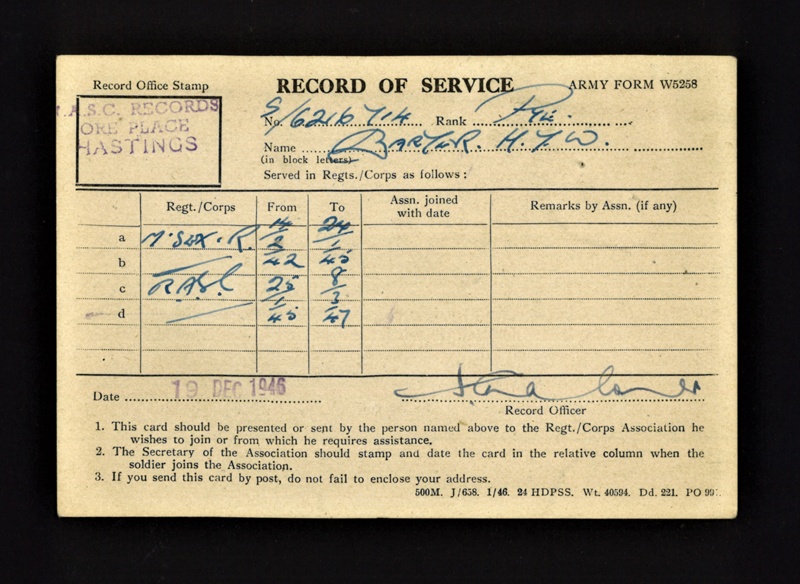 Record Office Stamp
RECORD OF SERVICE
ARMY FORM W5258
.A.S.C. RECORDS
ORE PLACE
HASTINGS
No. S/6216714 Rank Pte.
Name BARTER. H. J. W.
(in block letters)
Served in Regts./Corps as follows :
Regt./Corps From To Assn. joined with date Remarks by Assn. (if any)
a M'SEX. R. 14/2/42 24/1/45
b
c R.A.S.C 25/1/45 8/3/47
d
Date 19 DEC 1946
Record Officer
1. This card should be presented or sent by the person named above to the Regt./Corps Association he
wishes to join or from which he requires assistance.
2. The Secretary of the Association should stamp and date the card in the relative column when the
soldier joins the Association.
3. If you send this card by post, do not fail to enclose your address.
500M. J/658. 1/46. 24 HDPSS. Wt. 40594. Dd. 221. PO 99